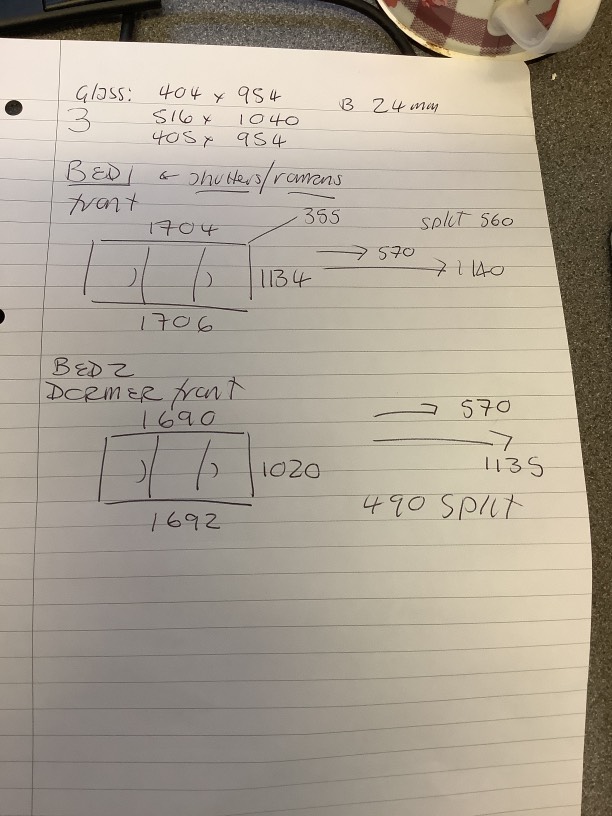 Glass: 404 x 954 B 24mm
3 516 x 1040
405 x 954
BED1 & shutters/romans
front
1704 355 split 560
570
1134 1140
1706
BED2
DORMER front
1690 570
1020 1135
1692 490 split